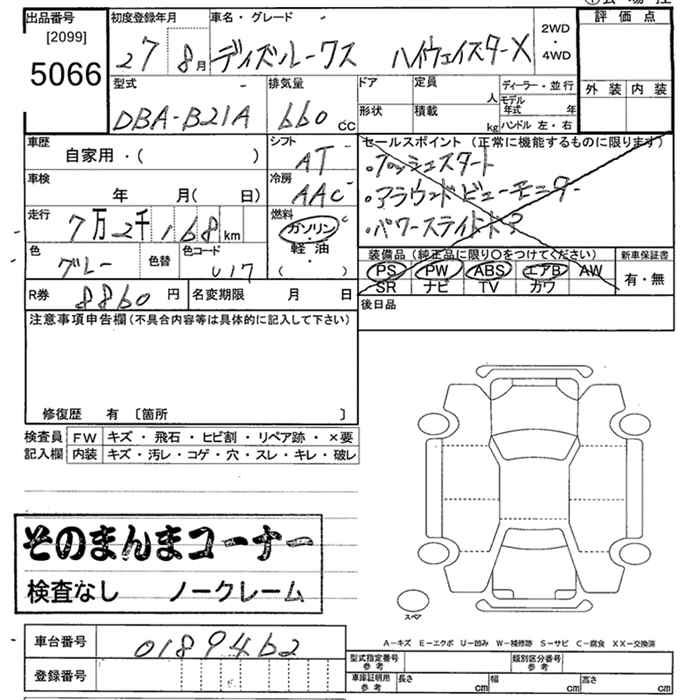 出品番号 [2099] 5066
初度登録年月 27 8月
車名・グレード ディズルークス ハイウェイスターX
2WD・4WD
評価点
外装 内装
型式 DBA-B21A
排気量 660 cc
ドア 形状
定員 人
積載 kg
ディーラー・並行
モデル年式 年
ハンドル 左・右
車歴 自家用・( )
シフト AT
車検 年 月( 日)
冷房 AAC
走行 7万2千168km
燃料 ガソリン・軽油・( )
色 グレー 色替 色コード U17
セールスポイント (正常に機能するものに限ります)
・プッシュスタート
・アラウンドビューモニター
・パワースライドドア
装備品 (純正品に限り○をつけてください)
PS PW ABS エアB AW
SR ナビ TV カワ
新車保証書 有・無
R券 8860円 名変期限 月 日
後日品
注意事項申告欄(不具合内容等は具体的に記入して下さい)
修復歴 有 〔箇所 〕
検査員記入欄
FW キズ・飛石・ヒビ割・リペア跡・×要
内装 キズ・汚レ・コゲ・穴・スレ・キレ・破レ
そのまんまコーナー
検査なし ノークレーム
スペア
A-キズ E-エクボ U-凹み W-補修跡 S-サビ C-腐食 XX-交換済
車台番号 0189462
登録番号
型式指定番号 参考 類別区分番号 参考
車庫証明用 参考 長さ cm 幅 cm 高さ cm